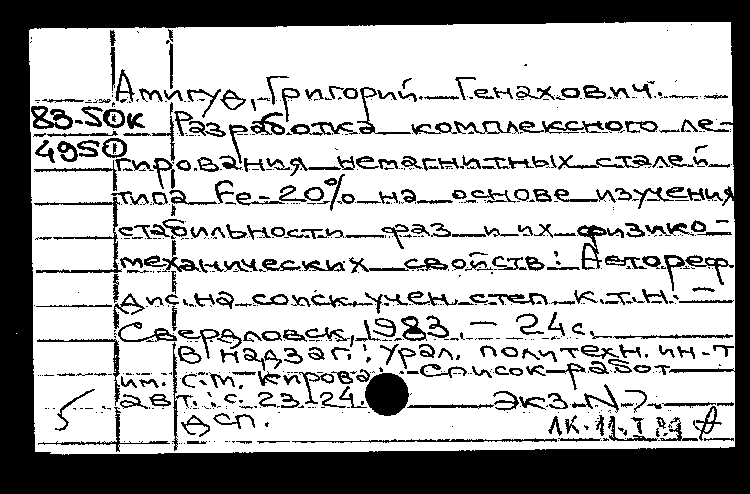 Амигуд, Григорий Генахович.
83-50к Разработка комплексного ле-
4950 гирования немагнитных сталей
типа Fe-20% на основе изучения
стабильности фаз и их физико-
механических свойств: Автореф.
дис. на соиск. учен. степ. к.т.н. -
Свердловск, 1983. - 24 с.
В надзаг.: Урал. политехн. ин-т
им. С.М. Кирова. Список работ
авт.: с. 23-24. Экз. N
5 Дсп. 1К. 11.I 89